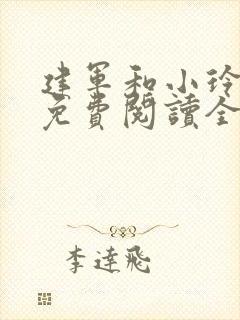 建軍和小玲
免費閱讀全
李達飛